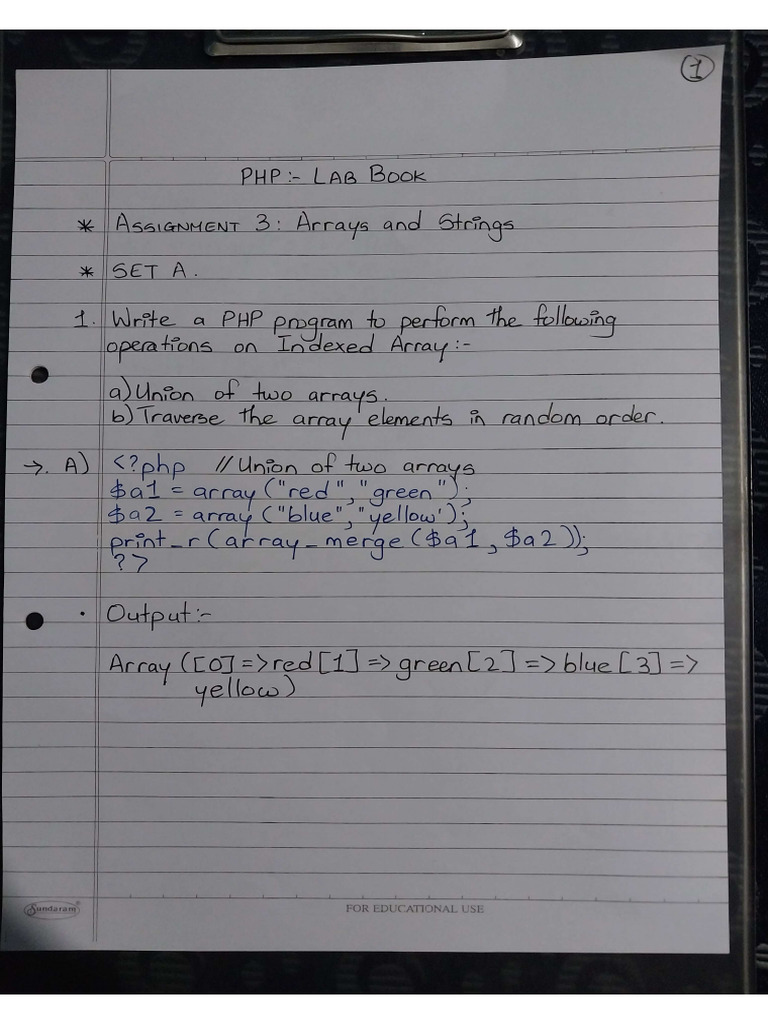 1
PHP:- LAB BOOK
* ASSIGNMENT 3: Arrays and Strings
* SET A.
1. Write a PHP program to perform the following
operations on Indexed Array:-
a) Union of two arrays.
b) Traverse the array elements in random order.
→. A) <?php // Union of two arrays
$a1 = array ("red", "green");
$a2 = array ("blue", "yellow');
print_r (array_merge ($a1, $a2));
?>
· Output:-
Array ([0] => red [1] => green [2] => blue [3] =>
yellow)
Sundaram®
FOR EDUCATIONAL USE